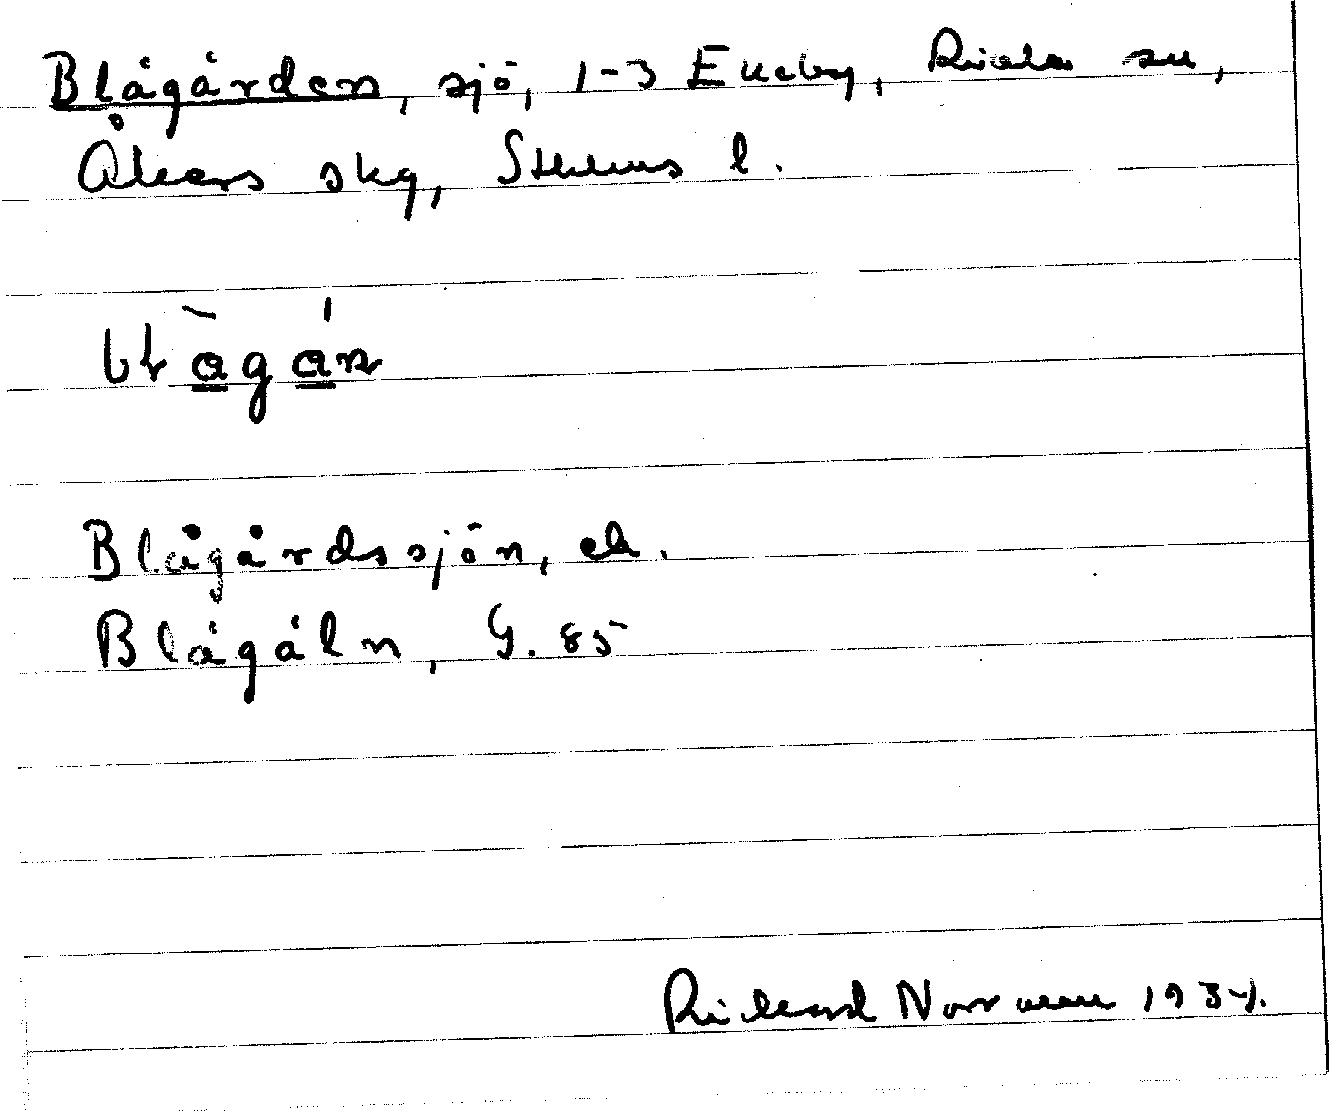 Blågården, sjö, 1-3 Ekeby, Riala sn,
Åkers skg, Sthlms l.
Blågårdssjön, ek.
Blågåln, G. 85
Rickard Norrman 1934.